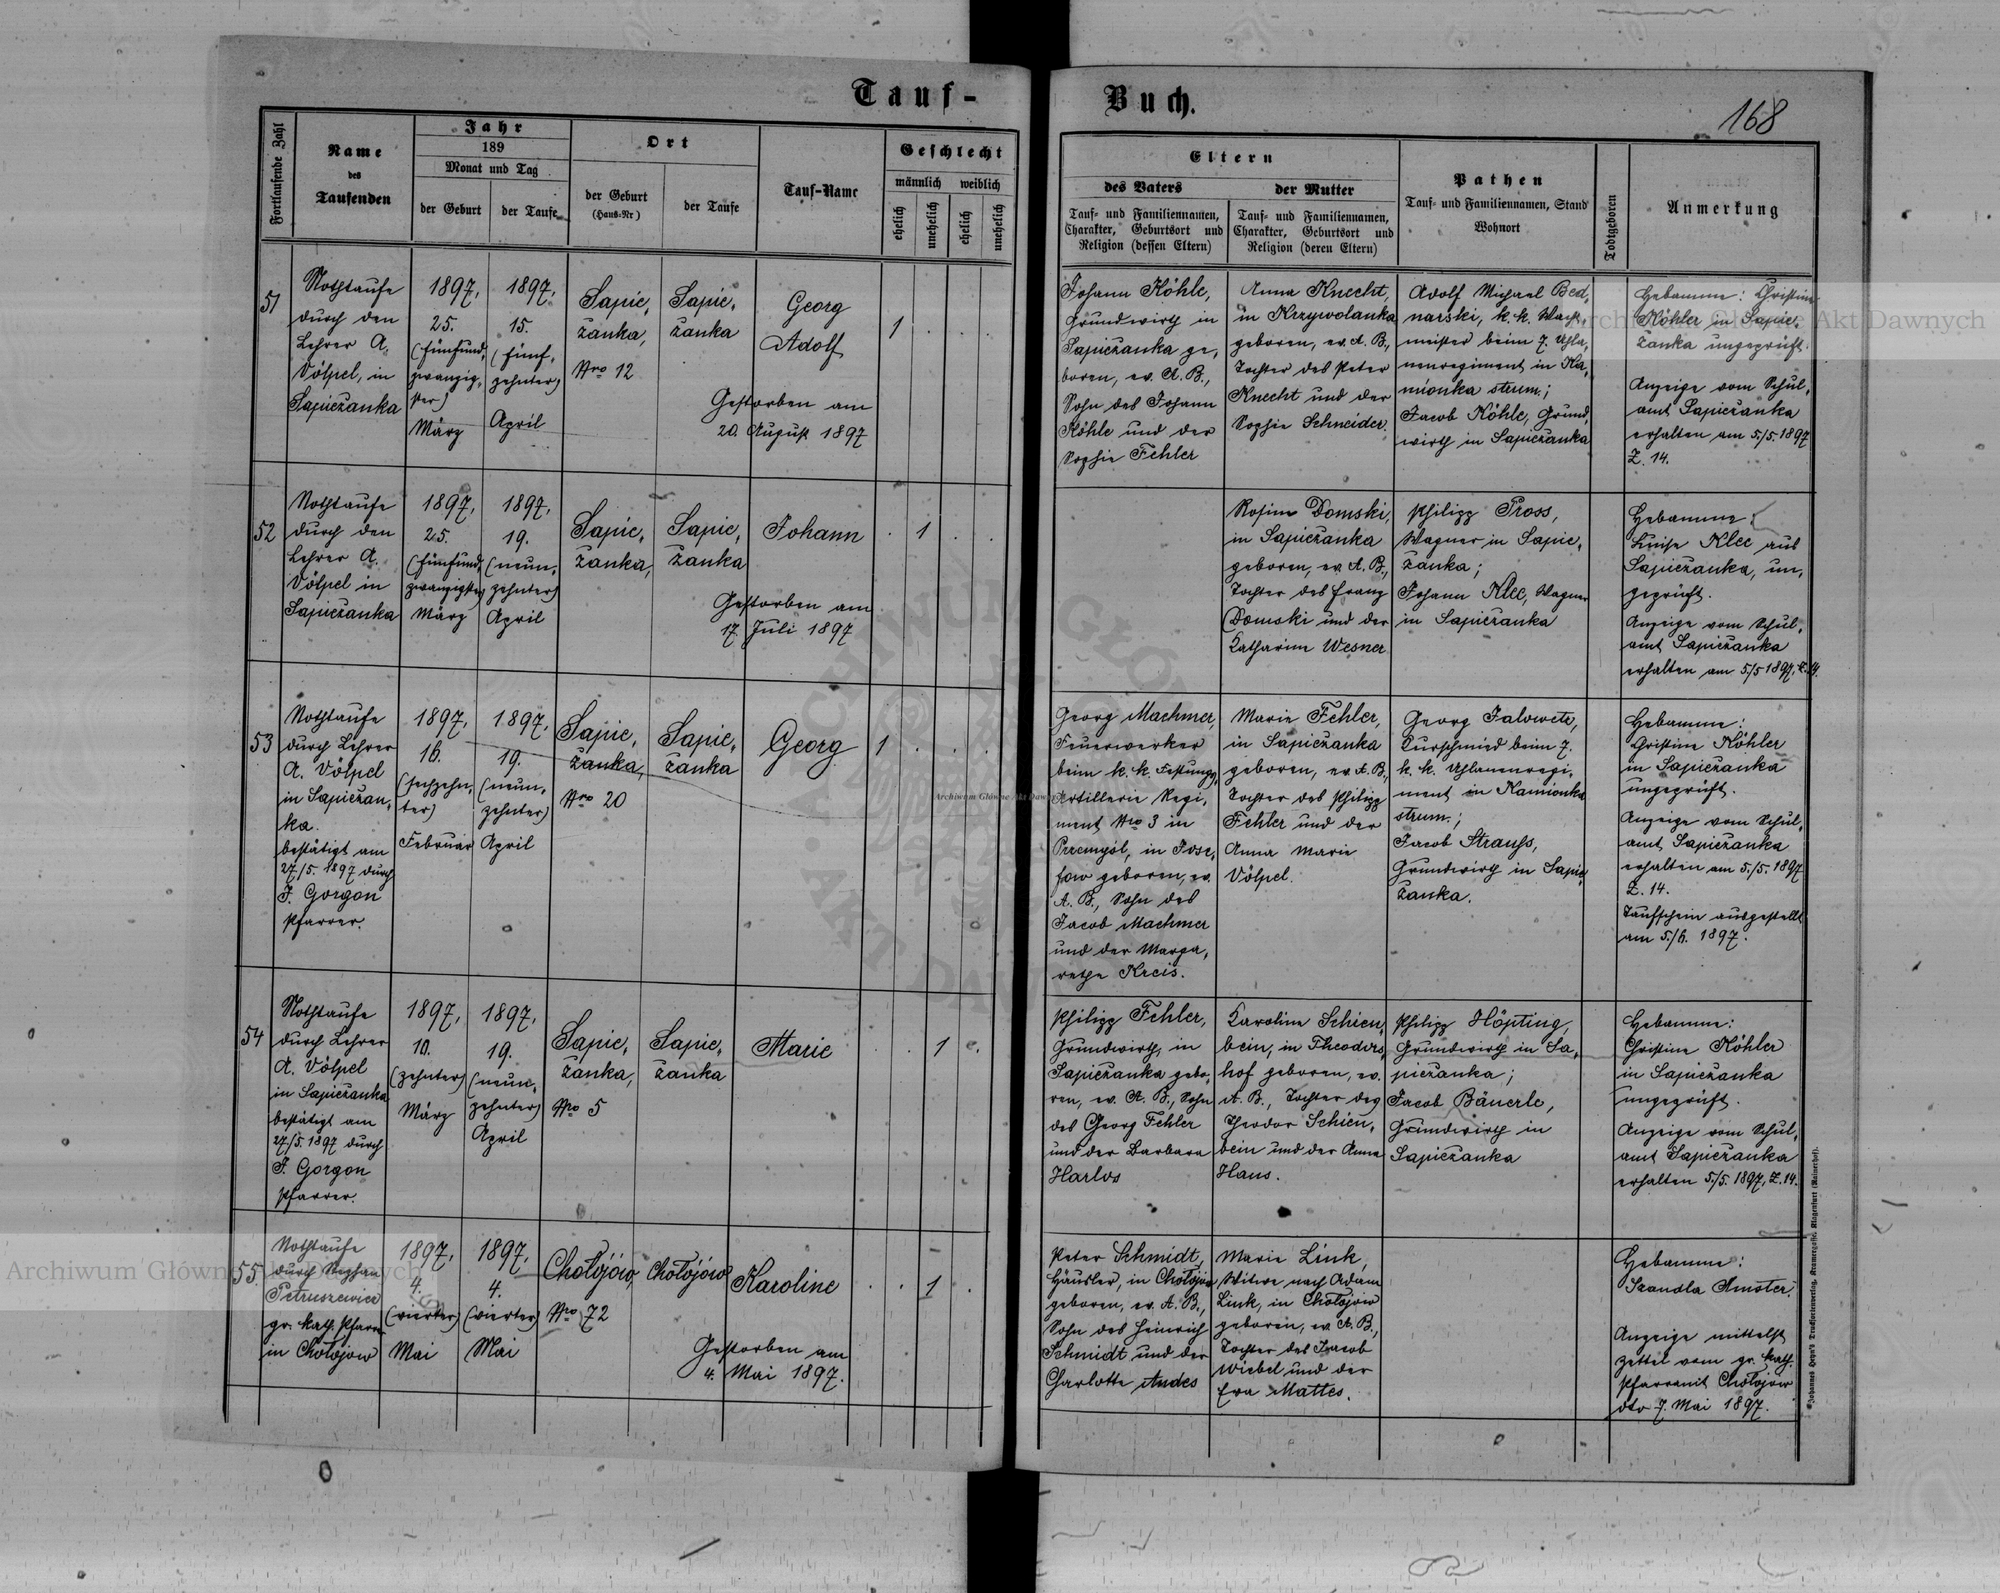 Tauf-
Buch.
168
Fortlaufende Zahl
Name
des
Taufenden
Jahr
189
Monat und Tag
der Geburt
der Taufe
Ort
der Geburt
(Haus-Nr)
der Taufe
Tauf-Name
Geschlecht
männlich
weiblich
ehelich
unehelich
ehelich
unehelich
Eltern
des Vaters
Tauf- und Familiennamen,
Charakter, Geburtsort und
Religion (dessen Eltern)
der Mutter
Tauf- und Familiennamen,
Charakter, Geburtsort und
Religion (deren Eltern)
Pathen
Tauf- und Familiennamen, Stand
Wohnort
Todtgeboren
Anmerkung
51
Nothtaufe
durch den
Lehrer A.
Völpel, in
Sapieżanka
1897,
25.
(fünfund,
zwanzig,
ster)
März
1897,
15.
(fünf,
zehnter)
April
Sapie,
żanka,
Nro 12
Sapie,
żanka
Georg
Adolf
Gestorben am
20. August 1897
1
Johann Köhle,
Grundwirth in
Sapieżanka ge,
boren, ev. A. B.,
Sohn des Johann
Köhle und der
Sophie Fehler
Anna Knecht,
in Krzywolanka
geboren, ev. A. B.,
Tochter des Peter
Knecht und der
Sophie Schneider
Adolf Michael Bed,
narski, k. k. Wach,
meister beim 7. Uhla,
nenregiment in Ka,
mionka strum.;
Jacob Köhle, Grund,
wirth in Sapieżanka
Hebamme: Christine
Köhler in Sapie,
żanka ungeprüft.
Anzeige vom Schul,
amt Sapieżanka
erhalten am 5./5. 1897
Z. 14.
52
Nothtaufe
durch den
Lehrer A.
Völpel in
Sapieżanka
1897,
25.
(fünfund,
zwanzigster)
März
1897,
19.
(neun,
zehnter)
April
Sapie,
żanka,
Sapie,
żanka
Johann
Gestorben am
17. Juli 1897
1
Rosine Domski,
in Sapieżanka
geboren, ev. A. B.,
Tochter des Franz
Domski und der
Katharine Wesner
Philipp Pross,
Wagner in Sapie,
żanka;
Johann Klee, Wagner
in Sapieżanka
Hebamme:
Luise Klee aus
Sapieżanka, un,
geprüft.
Anzeige vom Schul,
amt Sapieżanka
erhalten am 5./5 1897, Z. 14.
53
Nothtaufe
durch Lehrer
A. Völpel
in Sapieżan,
ka.
bestätigt am
27./5. 1897 durch
J. Gorgon
Pfarrer.
1897,
16.
(sechzehn,
ter)
Februar
1897,
19.
(neun,
zehnter)
April
Sapie,
żanka,
Nro 20
Sapie,
żanka
Georg
1
Georg Machmer,
Feuerwerker
beim k. k. Festungs,
Artillerie Regi,
ment Nro 3 in
Przemyśl, in Jose,
fow geboren, ev.
A. B., Sohn des
Jacob Machmer
und der Marga,
rethe Kreis.
Marie Fehler,
in Sapieżanka
geboren, ev. A. B.,
Tochter des Philipp
Fehler und der
Anna Marie
Völpel.
Georg Jalowetz,
Curschmied beim 7.
k. k. Uhlanenregi,
ment in Kamionka
strum.;
Jacob Strauss,
Grundwirth in Sapie,
żanka.
Hebamme:
Christine Köhler
in Sapieżanka
ungeprüft.
Anzeige vom Schul,
amt Sapieżanka
erhalten am 5./5. 1897
Z. 14.
Taufschein ausgestellt
am 5./6. 1897.
54
Nothtaufe
durch Lehrer
A. Völpel
in Sapieżanka
bestätigt am
27./5. 1897 durch
J. Gorgon
Pfarrer.
1897,
10.
(zehnter)
März
1897,
19.
(neun,
zehnter)
April
Sapie,
żanka,
Nro 5
Sapie,
żanka
Marie
1
Philipp Fehler,
Grundwirth, in
Sapieżanka gebo,
ren, ev. A. B., Sohn
des Georg Fehler
und der Barbara
Harlos
Karoline Schien,
bein, in Theodors,
hof geboren, ev.
A. B., Tochter des
Theodor Schien,
bein und der Anna
Haus.
Philipp Höpting,
Grundwirth in Sa,
pieżanka;
Jacob Bäuerle,
Grundwirth in
Sapieżanka
Hebamme:
Christine Köhler
in Sapieżanka
ungeprüft.
Anzeige vom Schul,
amt Sapieżanka
erhalten 5./5. 1897, Z. 14.
55.
Nothtaufe
durch Stephan
Petruszewicz
gr. kath. Pfarrer
in Chołojow
1897,
4.
(vierter)
Mai
1897,
4.
(vierter)
Mai
Chołojów,
Nro 72
Chołojów
Karoline
Gestorben am
4. Mai 1897.
1
Peter Schmidt,
Häusler, in Chołojów
geboren, ev. A. B.,
Sohn des Heinrich
Schmidt und der
Charlotte Andes
Marie Link,
Witwe nach Adam
Link, in Chołojów
geboren, ev. A. B.,
Tochter des Jacob
Wiebel und der
Eva Mattes.
Hebamme:
Szandla Amster.
Anzeige mittelst
Zettel vom gr. kath.
Pfarramt Chołojow
dto 7. Mai 1897.
Archiwum Główne Akt Dawnych